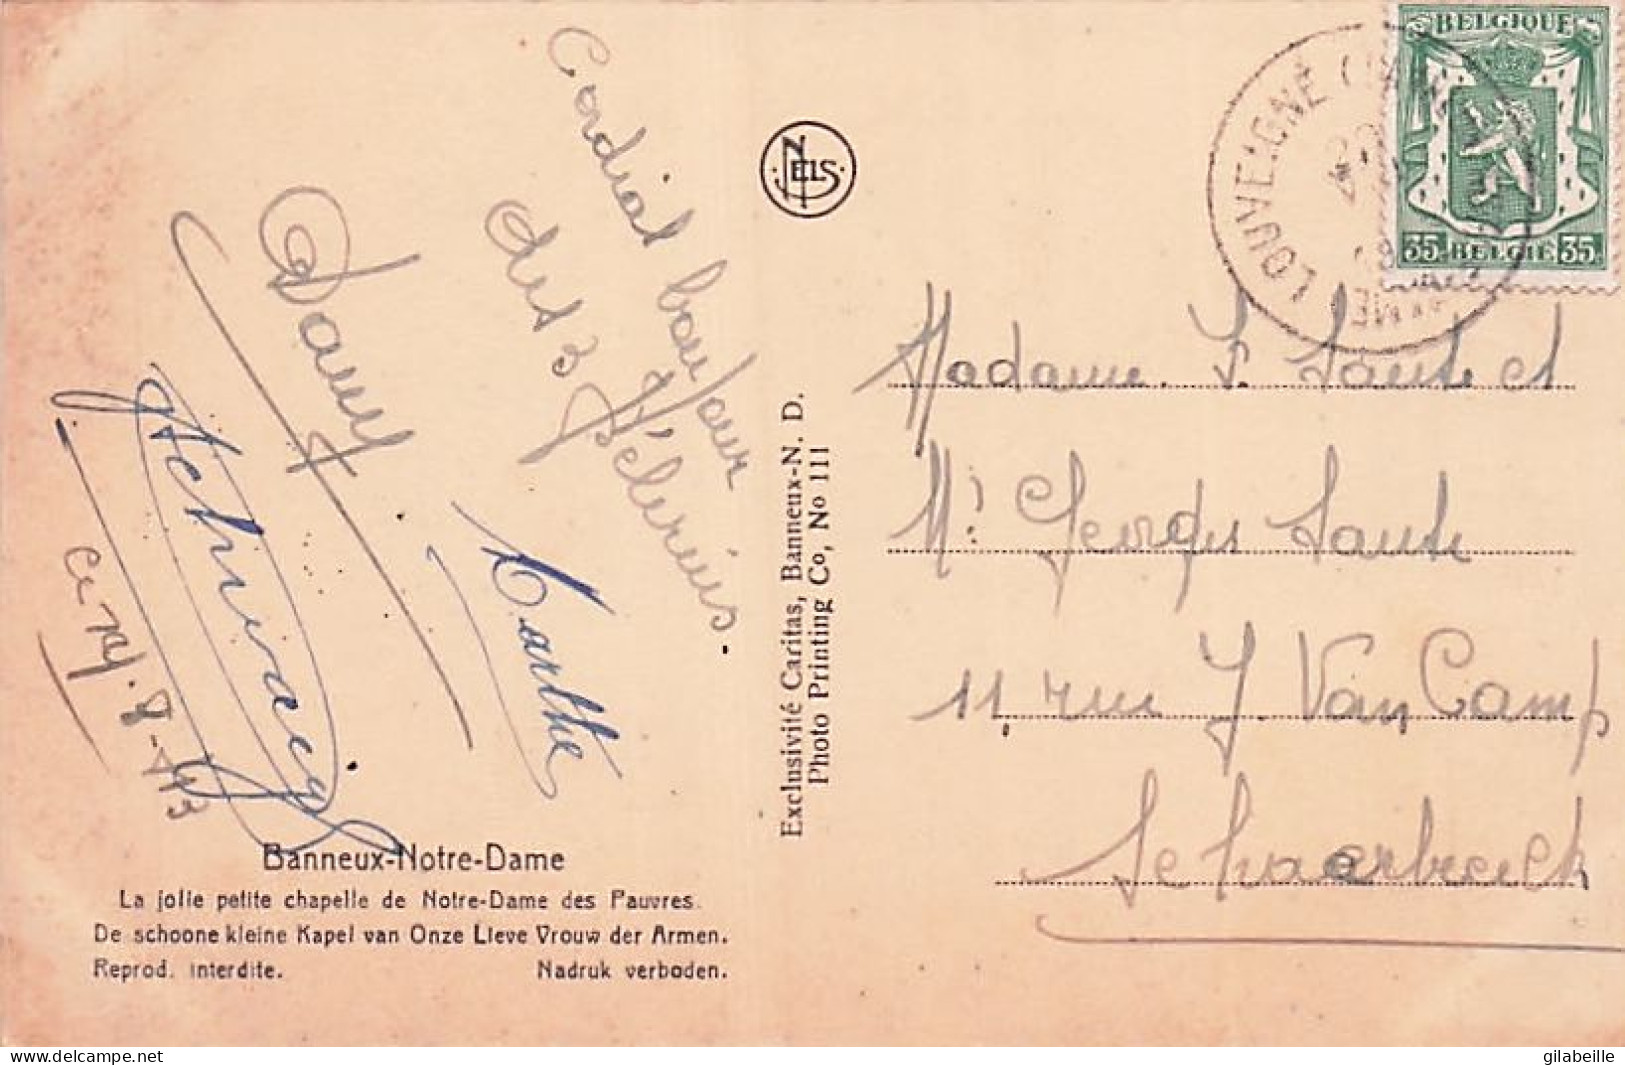 Cordial bonjour
des 3
Pélerins.
Dany
Marthe
ce 19/8-43
Banneux-Notre-Dame
La jolie petite chapelle de Notre-Dame des Pauvres.
De schoone kleine Kapel van Onze Lieve Vrouw der Armen.
Reprod. interdite. Nadruk verboden.
NELS
Exclusivité Caritas, Banneux-N. D.
Photo Printing Co, No 111
BELGIQUE
35 BELGIE 35
LOUVEIGNÉ
Madame S. et
Mr Georges
11, rue J. Van Camp
Schaerbeek
gilabeille